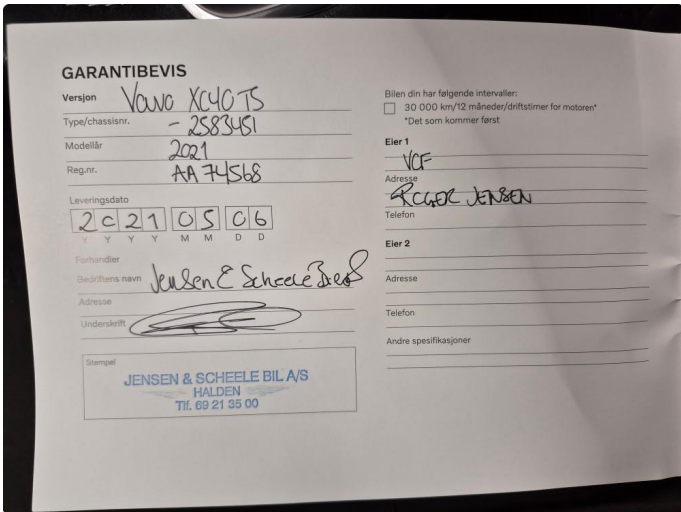 GARANTIBEVIS
Versjon Volvo XC40 T5
Type/chassisnr. - 2583451
Modellår 2021
Reg.nr. AA 74568
Leveringsdato
2021 05 06
Y Y Y Y M M D D
Forhandler
Bedriftens navn Jensen & Scheele Bil AS
Adresse
Underskrift
Stempel
JENSEN & SCHEELE BIL A/S
HALDEN
Tlf. 69 21 35 00
Bilen din har følgende intervaller:
30 000 km/12 måneder/driftstimer for motoren*
*Det som kommer først
Eier 1
VCF
Adresse
ROGER JENSEN
Telefon
Eier 2
Adresse
Telefon
Andre spesifikasjoner